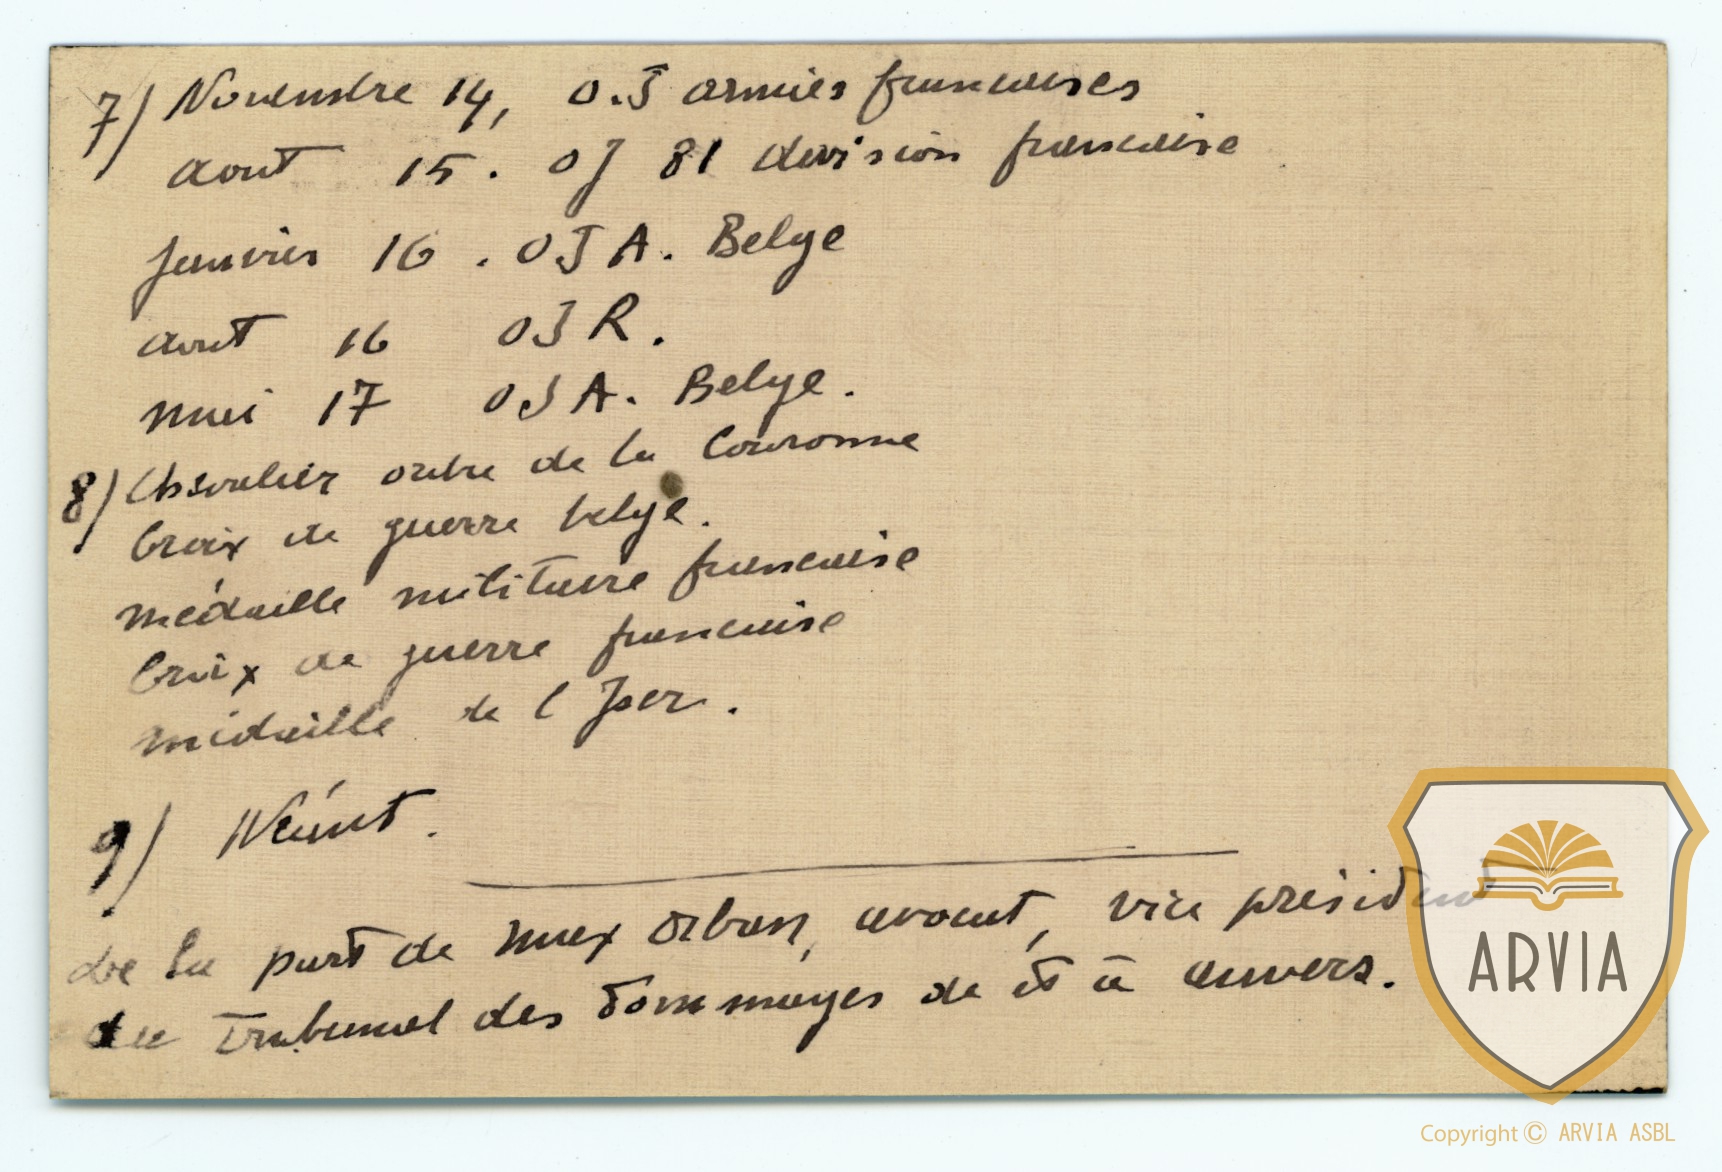 7/ Novembre 14, O.J armées francaises
aout 15. OJ 81 division francaise
Janvier 16. OJ A. Belge
aout 16 OJ R.
mai 17 OJ A. Belge.
8/ Chevalier ordre de la Couronne
Croix de guerre belge.
médaille militaire francaise
Croix de guerre francaise
médaille de l Yser.
9/ Néant.
de la part de max Orban, avocat, vice président
du Tribunal des dommages de à anvers.
ARVIA
Copyright © ARVIA ASBL